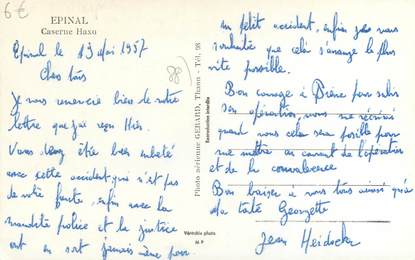 6€
EPINAL
Caserne Haxo
Epinal le 13 Mai 1957
Chers tous
88)
Je vous remercie bien de votre
lettre que j'ai reçu Hier.
Vous devez être bien embeté
avec cette accident qui n'est pas
de votre faute, enfin avec la
maudite police et la justice
ont en sort jamais même pour
Photo aérienne GERARD, Thaon - Tél. 98
Reproduction interdite
Véritable photo
M P
un petit accident, enfin je vous
souhaite que cela s'arrange le plus
vite possible.
Bon courage à pour
son opération, vous me
quand vous cela sera posible pour
me mettre au courant de l'opération
et de la convalecence
Bon baiser à vous tous ainsi qu'à
la tante Georgette
Jean